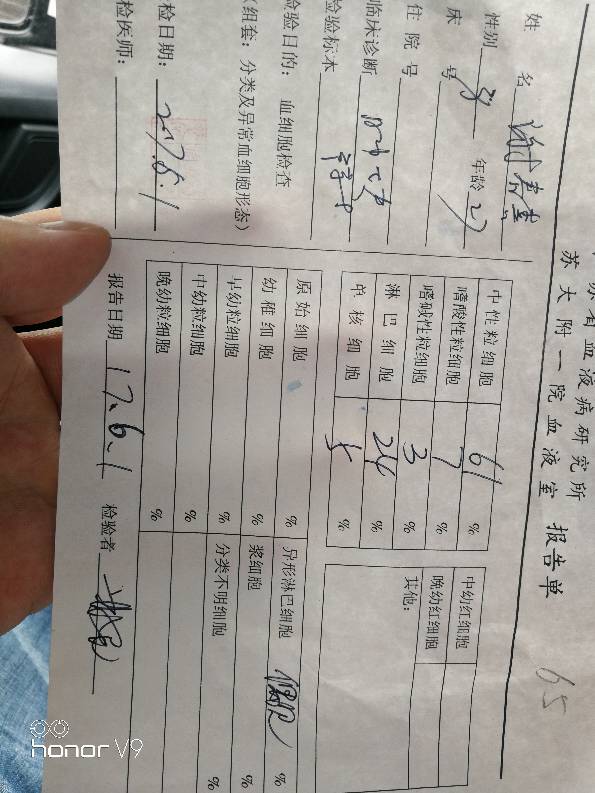 苏省血液病研究所
苏大附一院血液室 报告单
65
姓 名
性别 男 年龄 27
床 号
住 院 号
临床诊断
检验标本
检验目的: 血细胞检查
(组套: 分类及异常血细胞形态)
检日期: 2017.6.1
检医师:
中性粒细胞 61 %
嗜酸性粒细胞 7 %
嗜碱性粒细胞 3 %
淋巴细胞 24 %
单核细胞 5 %
中幼红细胞
晚幼红细胞
其他:
原始细胞 % 异形淋巴细胞 偶见 %
幼稚细胞 % 浆细胞 %
早幼粒细胞 % 分类不明细胞 %
中幼粒细胞 %
晚幼粒细胞 %
报告日期 17.6.1 检验者
honor V9